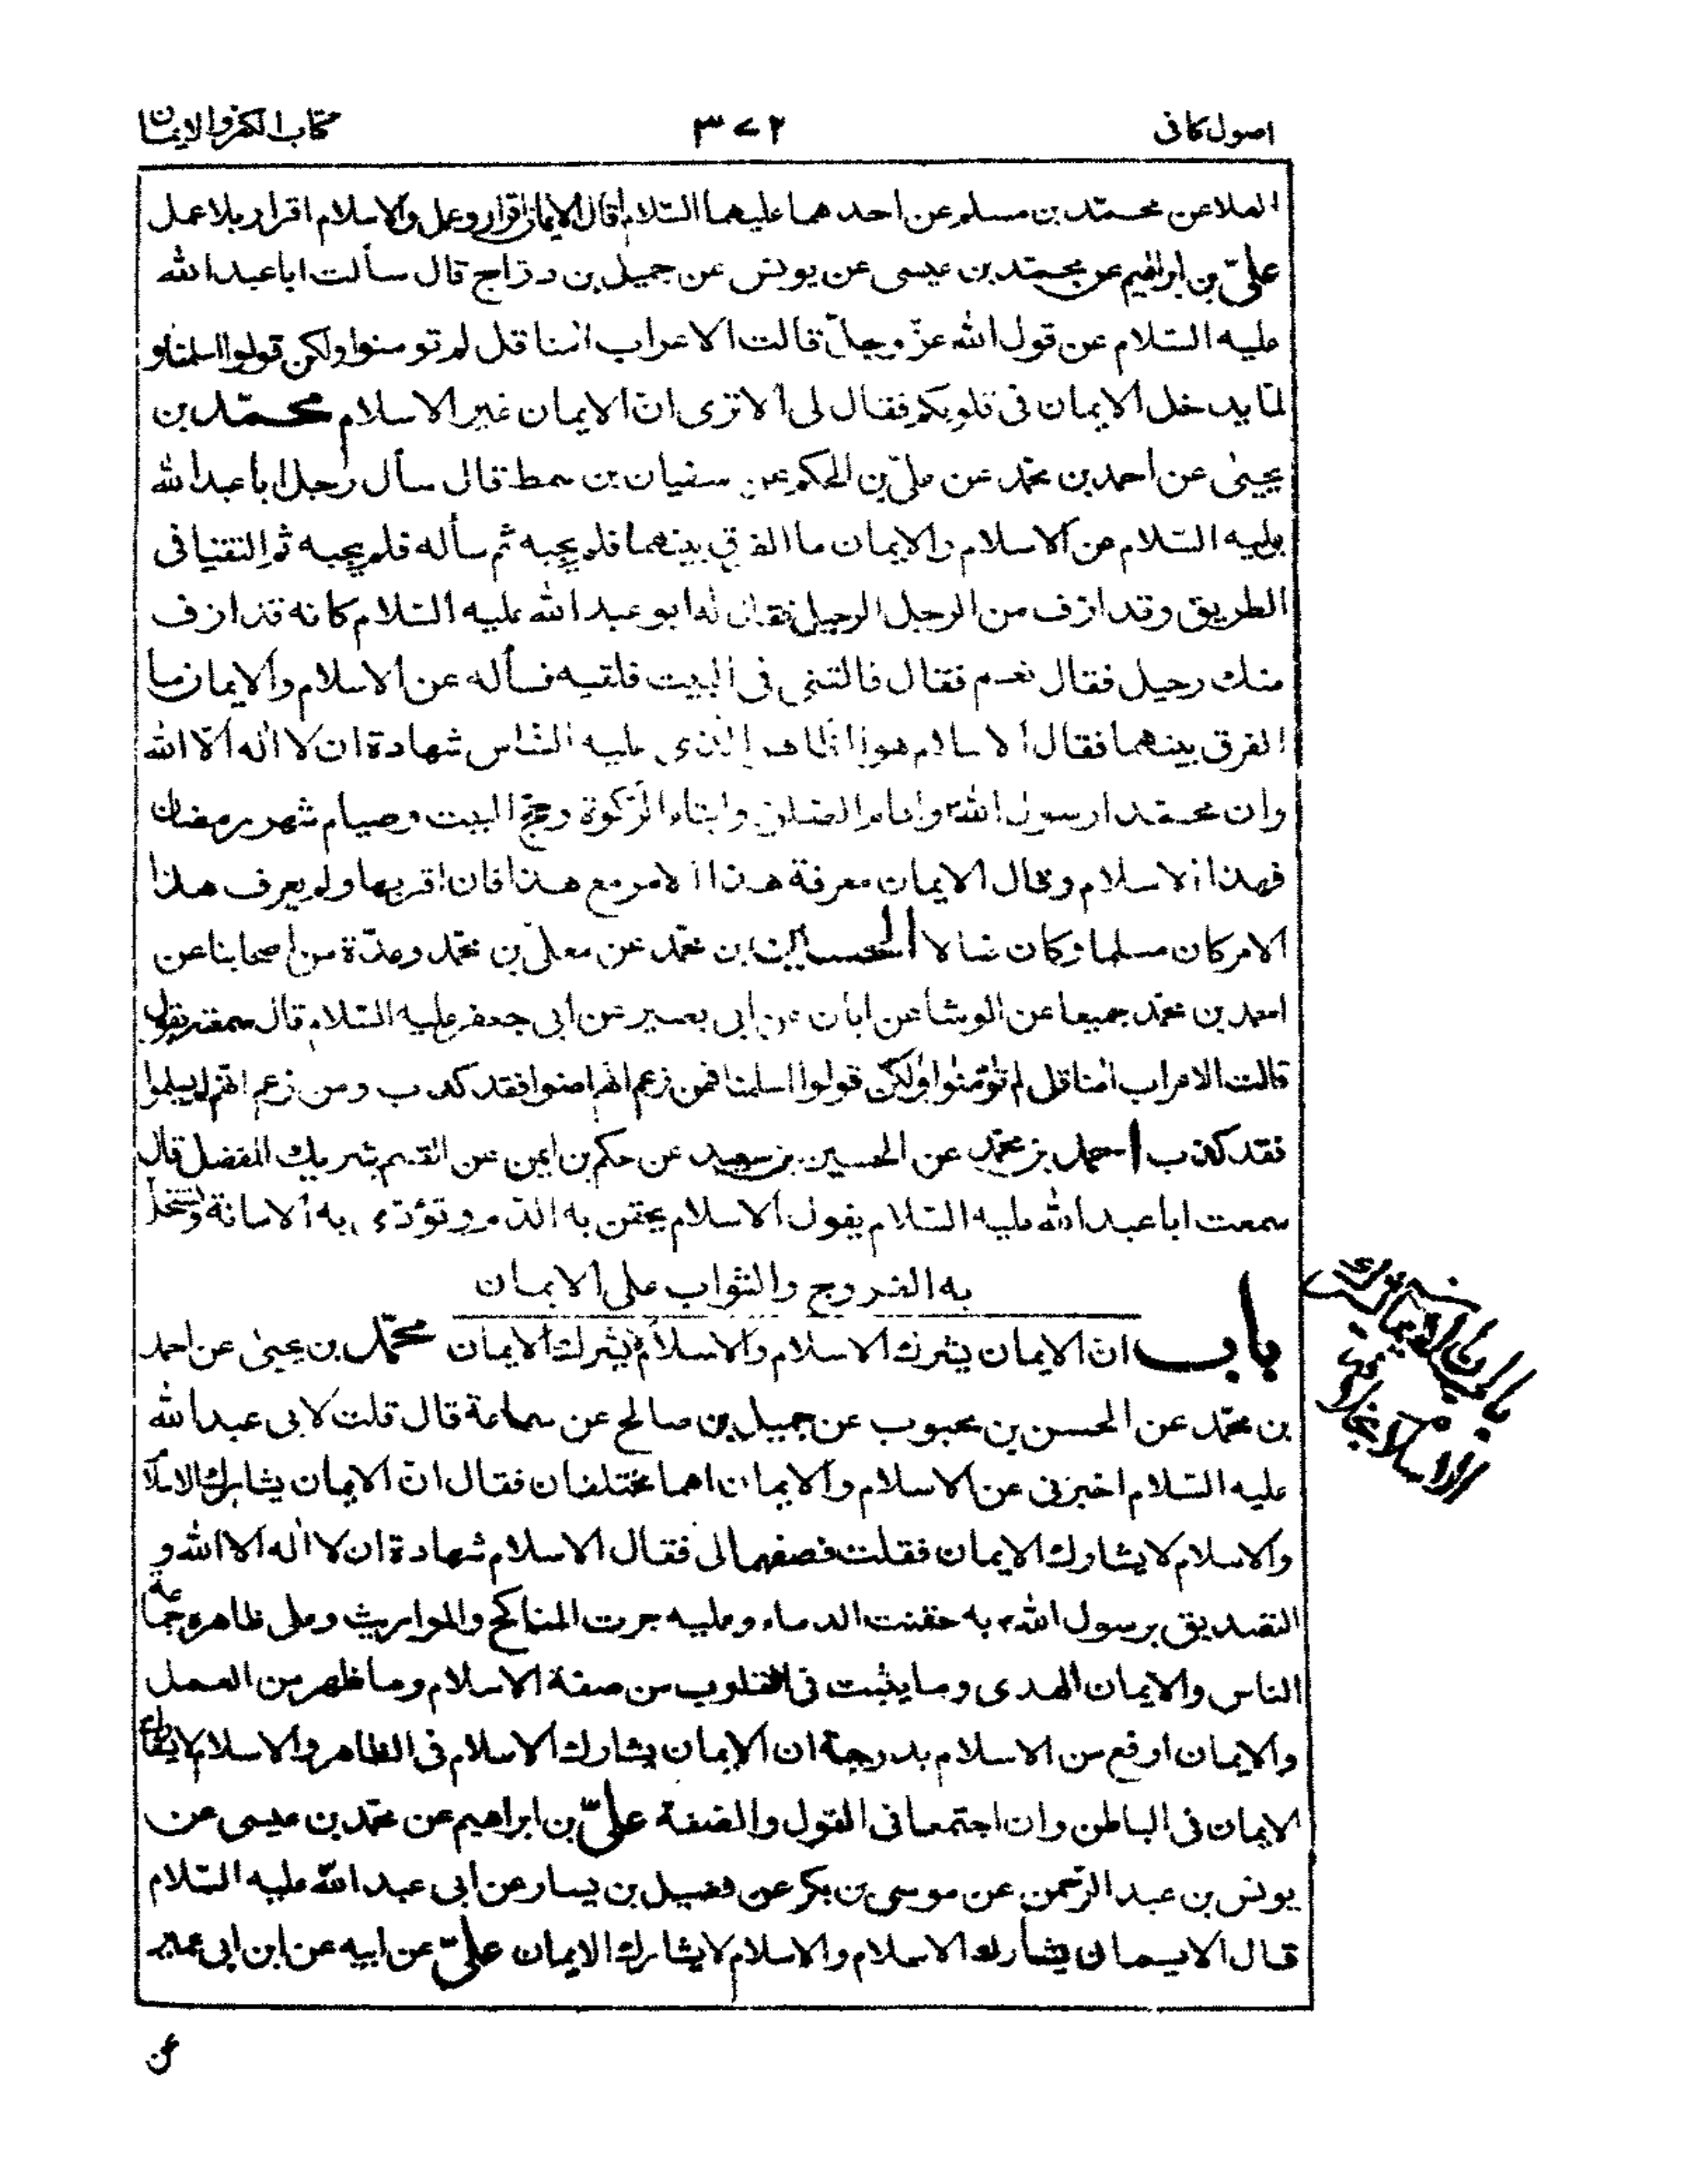 اصول كافى
٣٧٢
كتاب الكفر والايمان
العلا عن محمّد بن مسلم عن احدهما عليهما السّلام قال الايمان اقرار وعمل والاسلام اقرار بلا عمل
علىّ بن ابراهيم عن محمّد بن عيسى عن يونس عن جميل بن درّاج قال سألت ابا عبد الله
عليه السّلام عن قول الله عزّ وجلّ قالت الاعراب اٰمنا قل لم تومنوا ولكن قولوا اسلمنا و
لمّا يدخل الايمان فى قلوبكم فقال لى ألا ترى انّ الايمان غير الاسلام محمّد بن
يحيىٰ عن احمد بن محمّد عن علىّ بن الحكم عن سفيان بن سمط قال سأل رجل ابا عبد الله
عليه السّلام عن الاسلام والايمان ما الفرق بينهما فلم يجبه ثم سأله فلم يجبه ثم التقيا فى
الطريق وقد ازف من الرجل الرحيل فقال له ابو عبد الله عليه السّلام كانه قد ازف
منك رحيل فقال نعم فقال فالقنى فى البيت فلقيه فسأله عن الاسلام والايمان ما
الفرق بينهما فقال الاسلام هو الظاهر الذى عليه النّاس شهادة ان لا اله الّا الله
وان محمّدا رسول الله واقام الصّلوٰة وايتاء الزّكوة وحجّ البيت وصيام شهر رمضان
فهذا الاسلام وقال الايمان معرفة هذا الامر مع هذا فان اقر بها ولم يعرف هذا
الامر كان مسلما وكان ضالا الحسين بن محمّد عن معلىّ بن محمّد وعدّة من اصحابنا عن
احمد بن محمّد جميعا عن الوشا عن ابان عن ابى بصير عن ابى جعفر عليه السّلام قال سمعته يقول
قالت الاعراب اٰمنا قل لم تؤمنوا ولكن قولوا اسلمنا فمن زعم انهم اٰمنوا فقد كذب ومن زعم انهم لم يسلموا
فقد كذب احمد بن محمّد عن الحسين بن سعيد عن حكم بن ايمن عن القسم شريك المفضل قال
سمعت ابا عبد الله عليه السّلام يقول الاسلام يحقن به الدّم وتؤدّى به الامانة وتستحلّ
به الفروج والثواب على الايمان
باب ان الايمان يشرك الاسلام والاسلام لا يشرك الايمان محمّد بن يحيىٰ عن احمد
بن محمّد عن الحسن بن محبوب عن جميل بن صالح عن سماعة قال قلت لابى عبد الله
عليه السّلام اخبرنى عن الاسلام والايمان اهما مختلفان فقال انّ الايمان يشارك الاسلام
والاسلام لا يشارك الايمان فقلت فصفهما لى فقال الاسلام شهادة ان لا اله الا الله و
التصديق برسول الله به حقنت الدماء وعليه جرت المناكح والمواريث وعلى ظاهره جماعة
الناس والايمان الهدى وما يثبت فى القلوب من صفة الاسلام وما ظهر من العمل
والايمان ارفع من الاسلام بدرجة ان الايمان يشارك الاسلام فى الظاهر والاسلام لا يشارك
الايمان فى الباطن وان اجتمعا فى القول والصفة علىّ بن ابراهيم عن محمّد بن عيسى عن
يونس بن عبد الرّحمن عن موسى بن بكر عن فضيل بن يسار عن ابى عبد الله عليه السّلام
قال الايمان يشارك الاسلام والاسلام لا يشارك الايمان علىّ عن ابيه عن ابن ابى عمير
عن